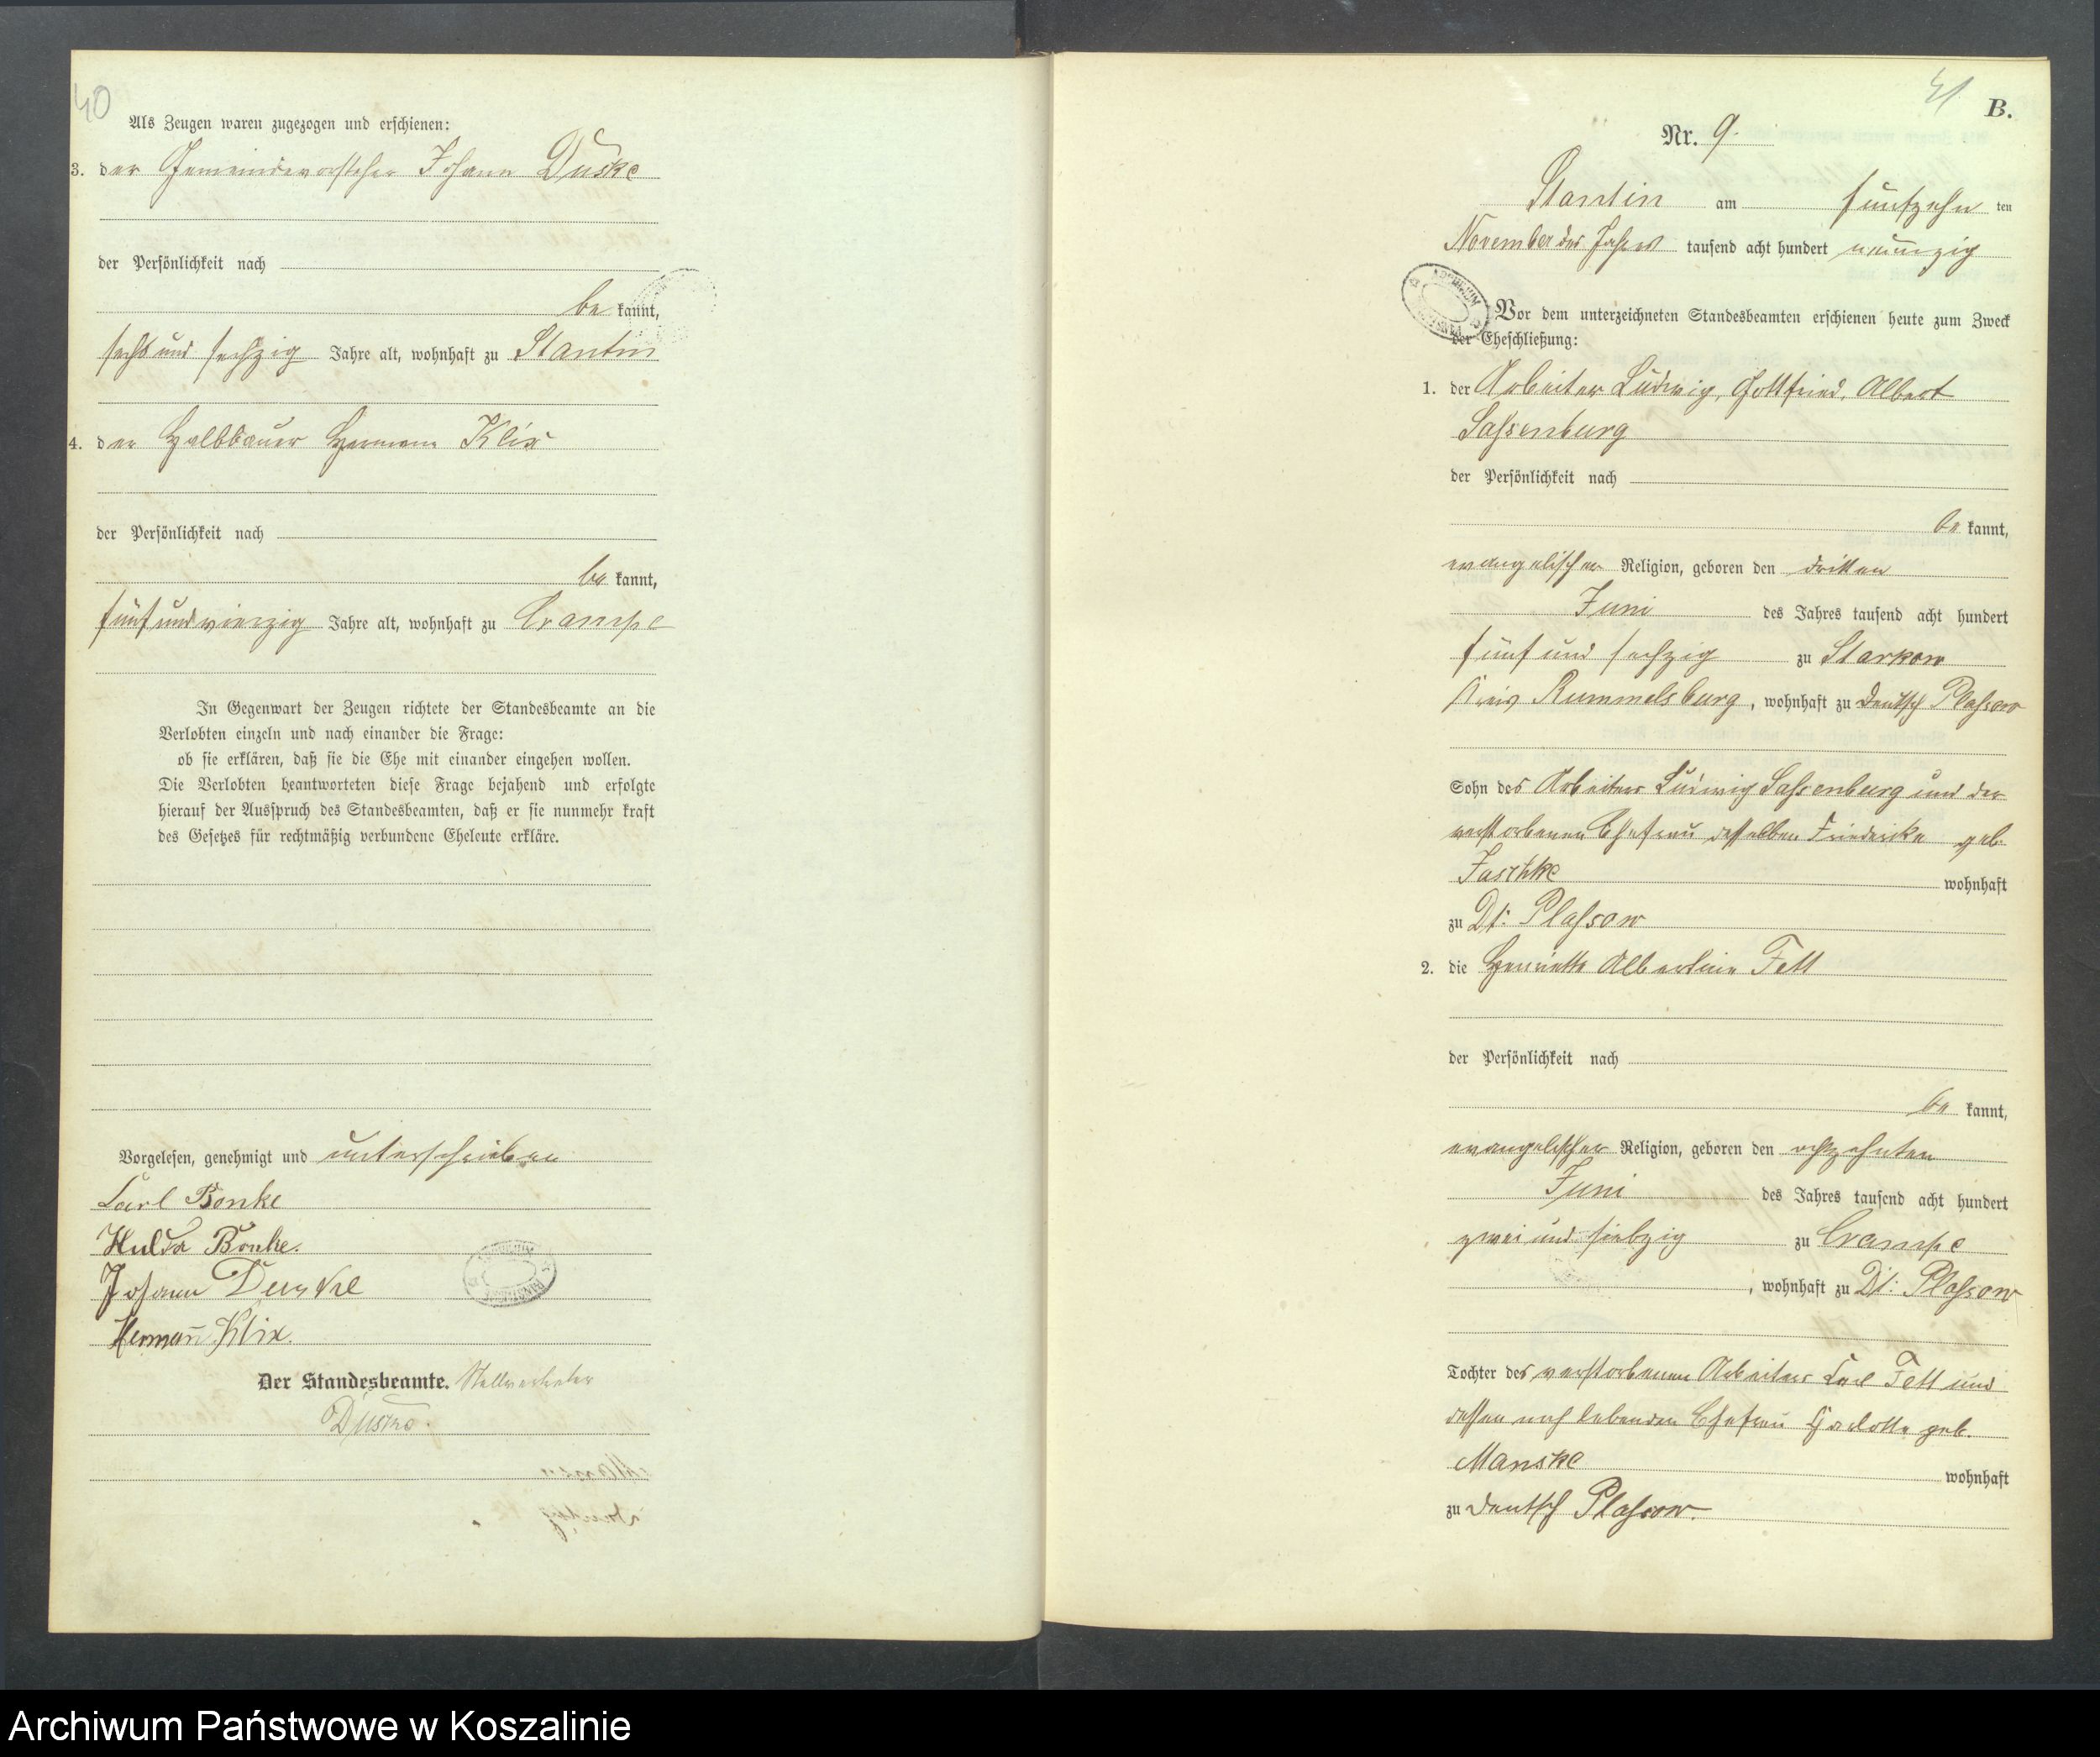 40
Als Zeugen waren zugezogen und erschienen:
3. der Gemeindevorsteher Johann Duske
der Persönlichkeit nach
be kannt,
sechs und sechzig Jahre alt, wohnhaft zu Stantin
4. der Halbbauer Hermann Klix
der Persönlichkeit nach
be kannt,
fünf und vierzig Jahre alt, wohnhaft zu Crampe
In Gegenwart der Zeugen richtete der Standesbeamte an die
Verlobten einzeln und nach einander die Frage:
ob sie erklären, daß sie die Ehe mit einander eingehen wollen.
Die Verlobten beantworteten diese Frage bejahend und erfolgte
hierauf der Ausspruch des Standesbeamten, daß er sie nunmehr kraft
des Gesetzes für rechtmäßig verbundene Eheleute erkläre.
Vorgelesen, genehmigt und unterschrieben
Carl Bonke
Hulda Bonke.
Johann Duske
Hermann Klix.
Der Standesbeamte. Stellvertreter
41
B.
Nr. 9.
Stantin am fünfzehn ten
November des Jahres tausend acht hundert neunzig
Vor dem unterzeichneten Standesbeamten erschienen heute zum Zweck
der Eheschließung:
1. der Arbeiter Ludwig, Gottfried, Albert
Saßenburg
der Persönlichkeit nach
be kannt,
evangelischer Religion, geboren den dritten
Juni des Jahres tausend acht hundert
fünf und sechzig zu Starkow
Kreis Rummelsburg, wohnhaft zu Deutsch Plaßow
Sohn des Arbeiters Ludwig Saßenburg und der
verstorbenen Ehefrau desselben Friedericke geb.
Jaschke wohnhaft
zu Dt: Plaßow
2. die Henriette Albertine Fett
der Persönlichkeit nach
be kannt,
evangelischer Religion, geboren den achtzehnten
Juni des Jahres tausend acht hundert
zwei und siebzig zu Crampe
, wohnhaft zu Dt: Plaßow
Tochter des verstorbenen Arbeiters Carl Fett und
dessen noch lebenden Ehefrau Charlotte geb.
Manske wohnhaft
zu Deutsch Plaßow.
Archiwum Państwowe w Koszalinie